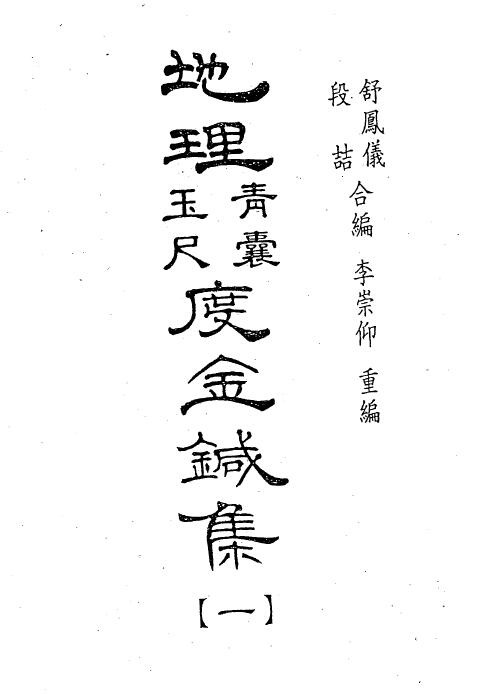 舒鳳儀
段喆 合編 李崇仰 重編
地理青囊玉尺度金鍼集
【一】